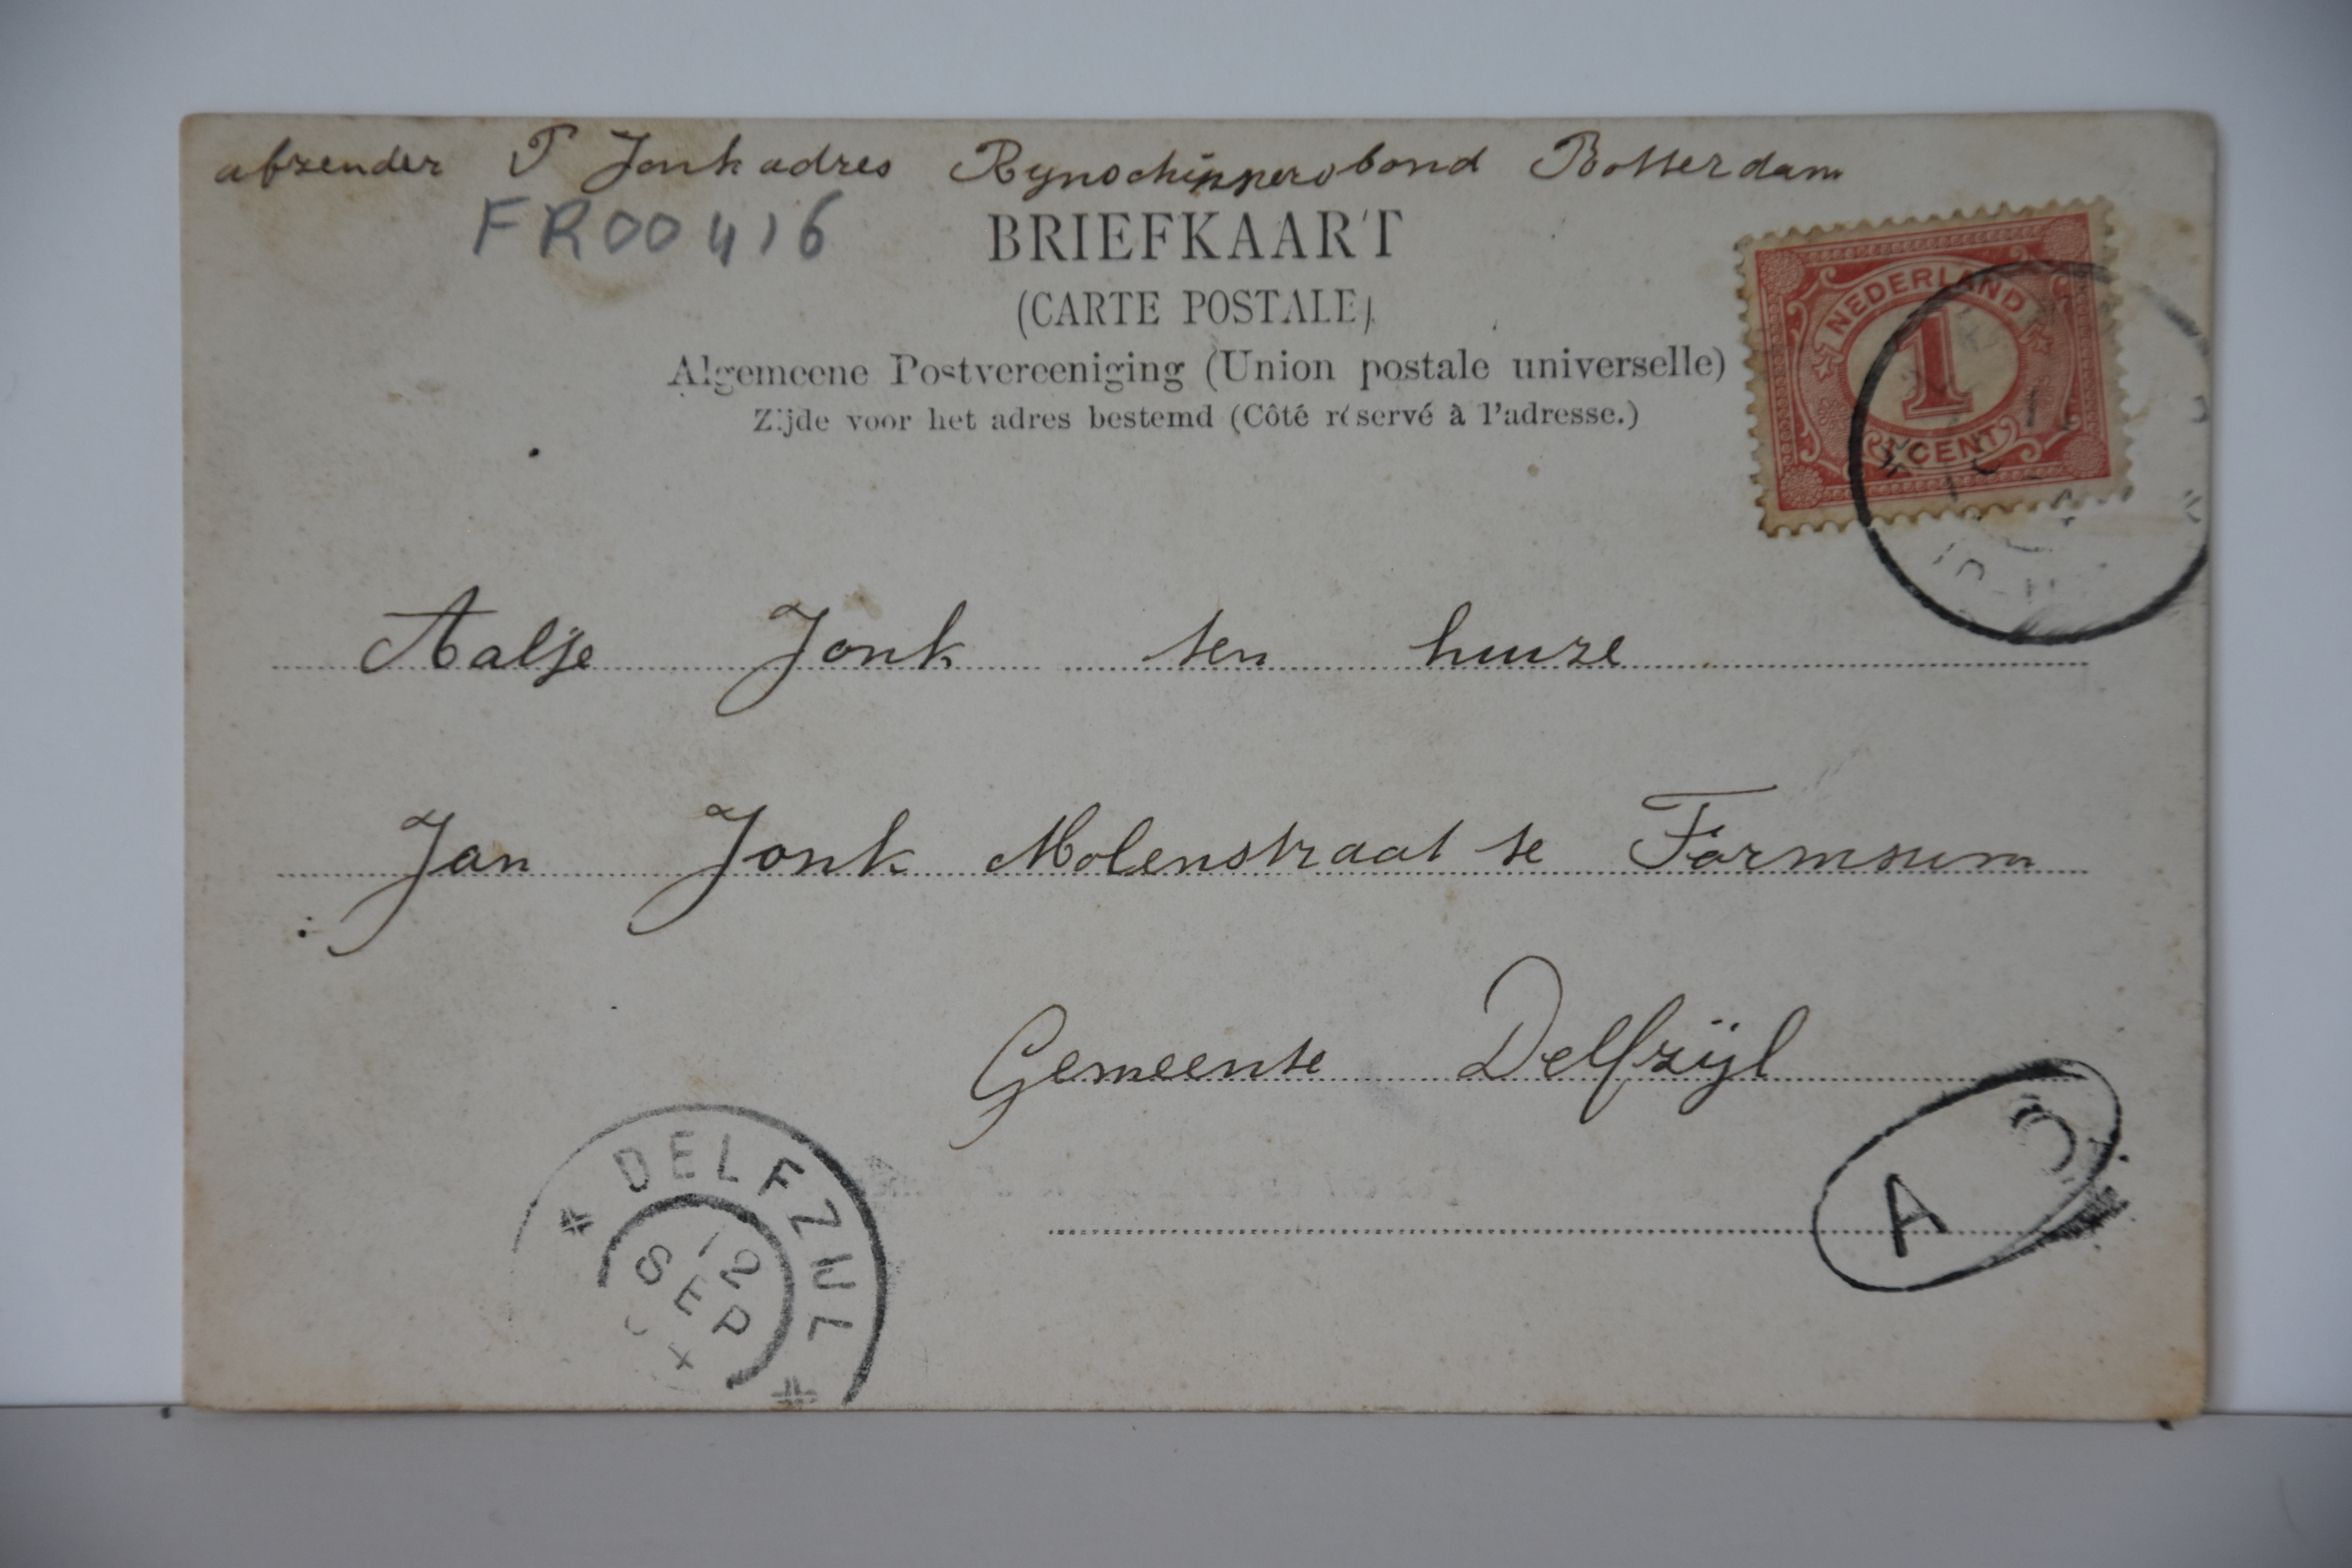 afzender P Jonk adres Rynschippersbond Rotterdam
FR00416
BRIEFKAART
(CARTE POSTALE)
Algemeene Postvereeniging (Union postale universelle)
Zijde voor het adres bestemd (Côté réservé à l'adresse.)
NEDERLAND
1
CENT
Aaltje Jonk ten huize
Jan Jonk Molenstraat te Farmsum
Gemeente Delfzijl
DELFZIJL
12
SEP
A